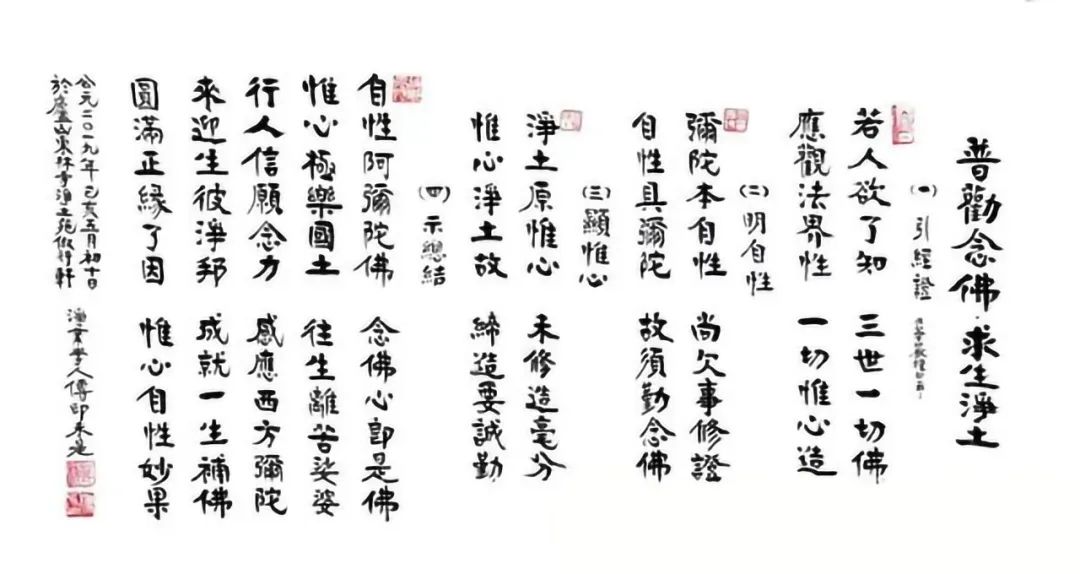 普勸念佛·求生淨土
(一)引經證
若人欲了知 三世一切佛
應觀法界性 一切惟心造
(二)明自性
彌陀本自性 尚欠事修證
自性具彌陀 故須勤念佛
(三)顯惟心
淨土原惟心 未修造毫分
惟心淨土故 締造要誠勤
(四)示總結
自性阿彌陀佛 念佛心即是佛
惟心極樂國土 往生離苦娑婆
行人信願念力 感應西方彌陀
來迎生彼淨邦 成就一生補佛
圓滿正緣了因 惟心自性妙果
公元二〇一九年己亥五月初十日
於廬山東林寺淨土苑 軒
淨業學人傳印未是